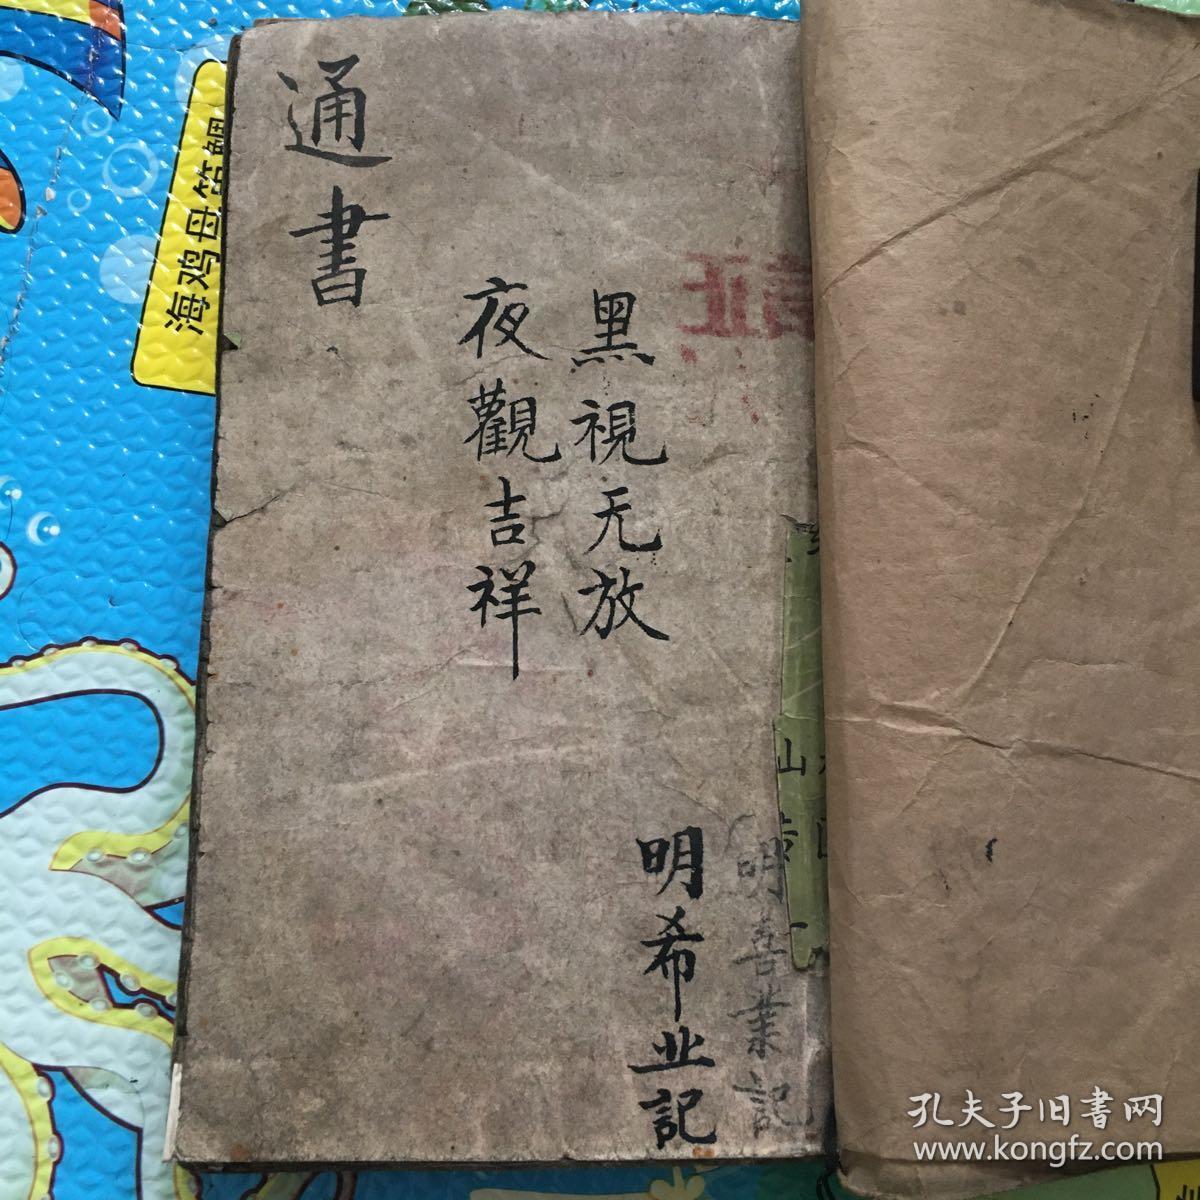 通書
黑視无放
夜觀吉祥
明喜業記
明希业記
海鸡母笛鲷
山
孔夫子旧書网
www.kongfz.com